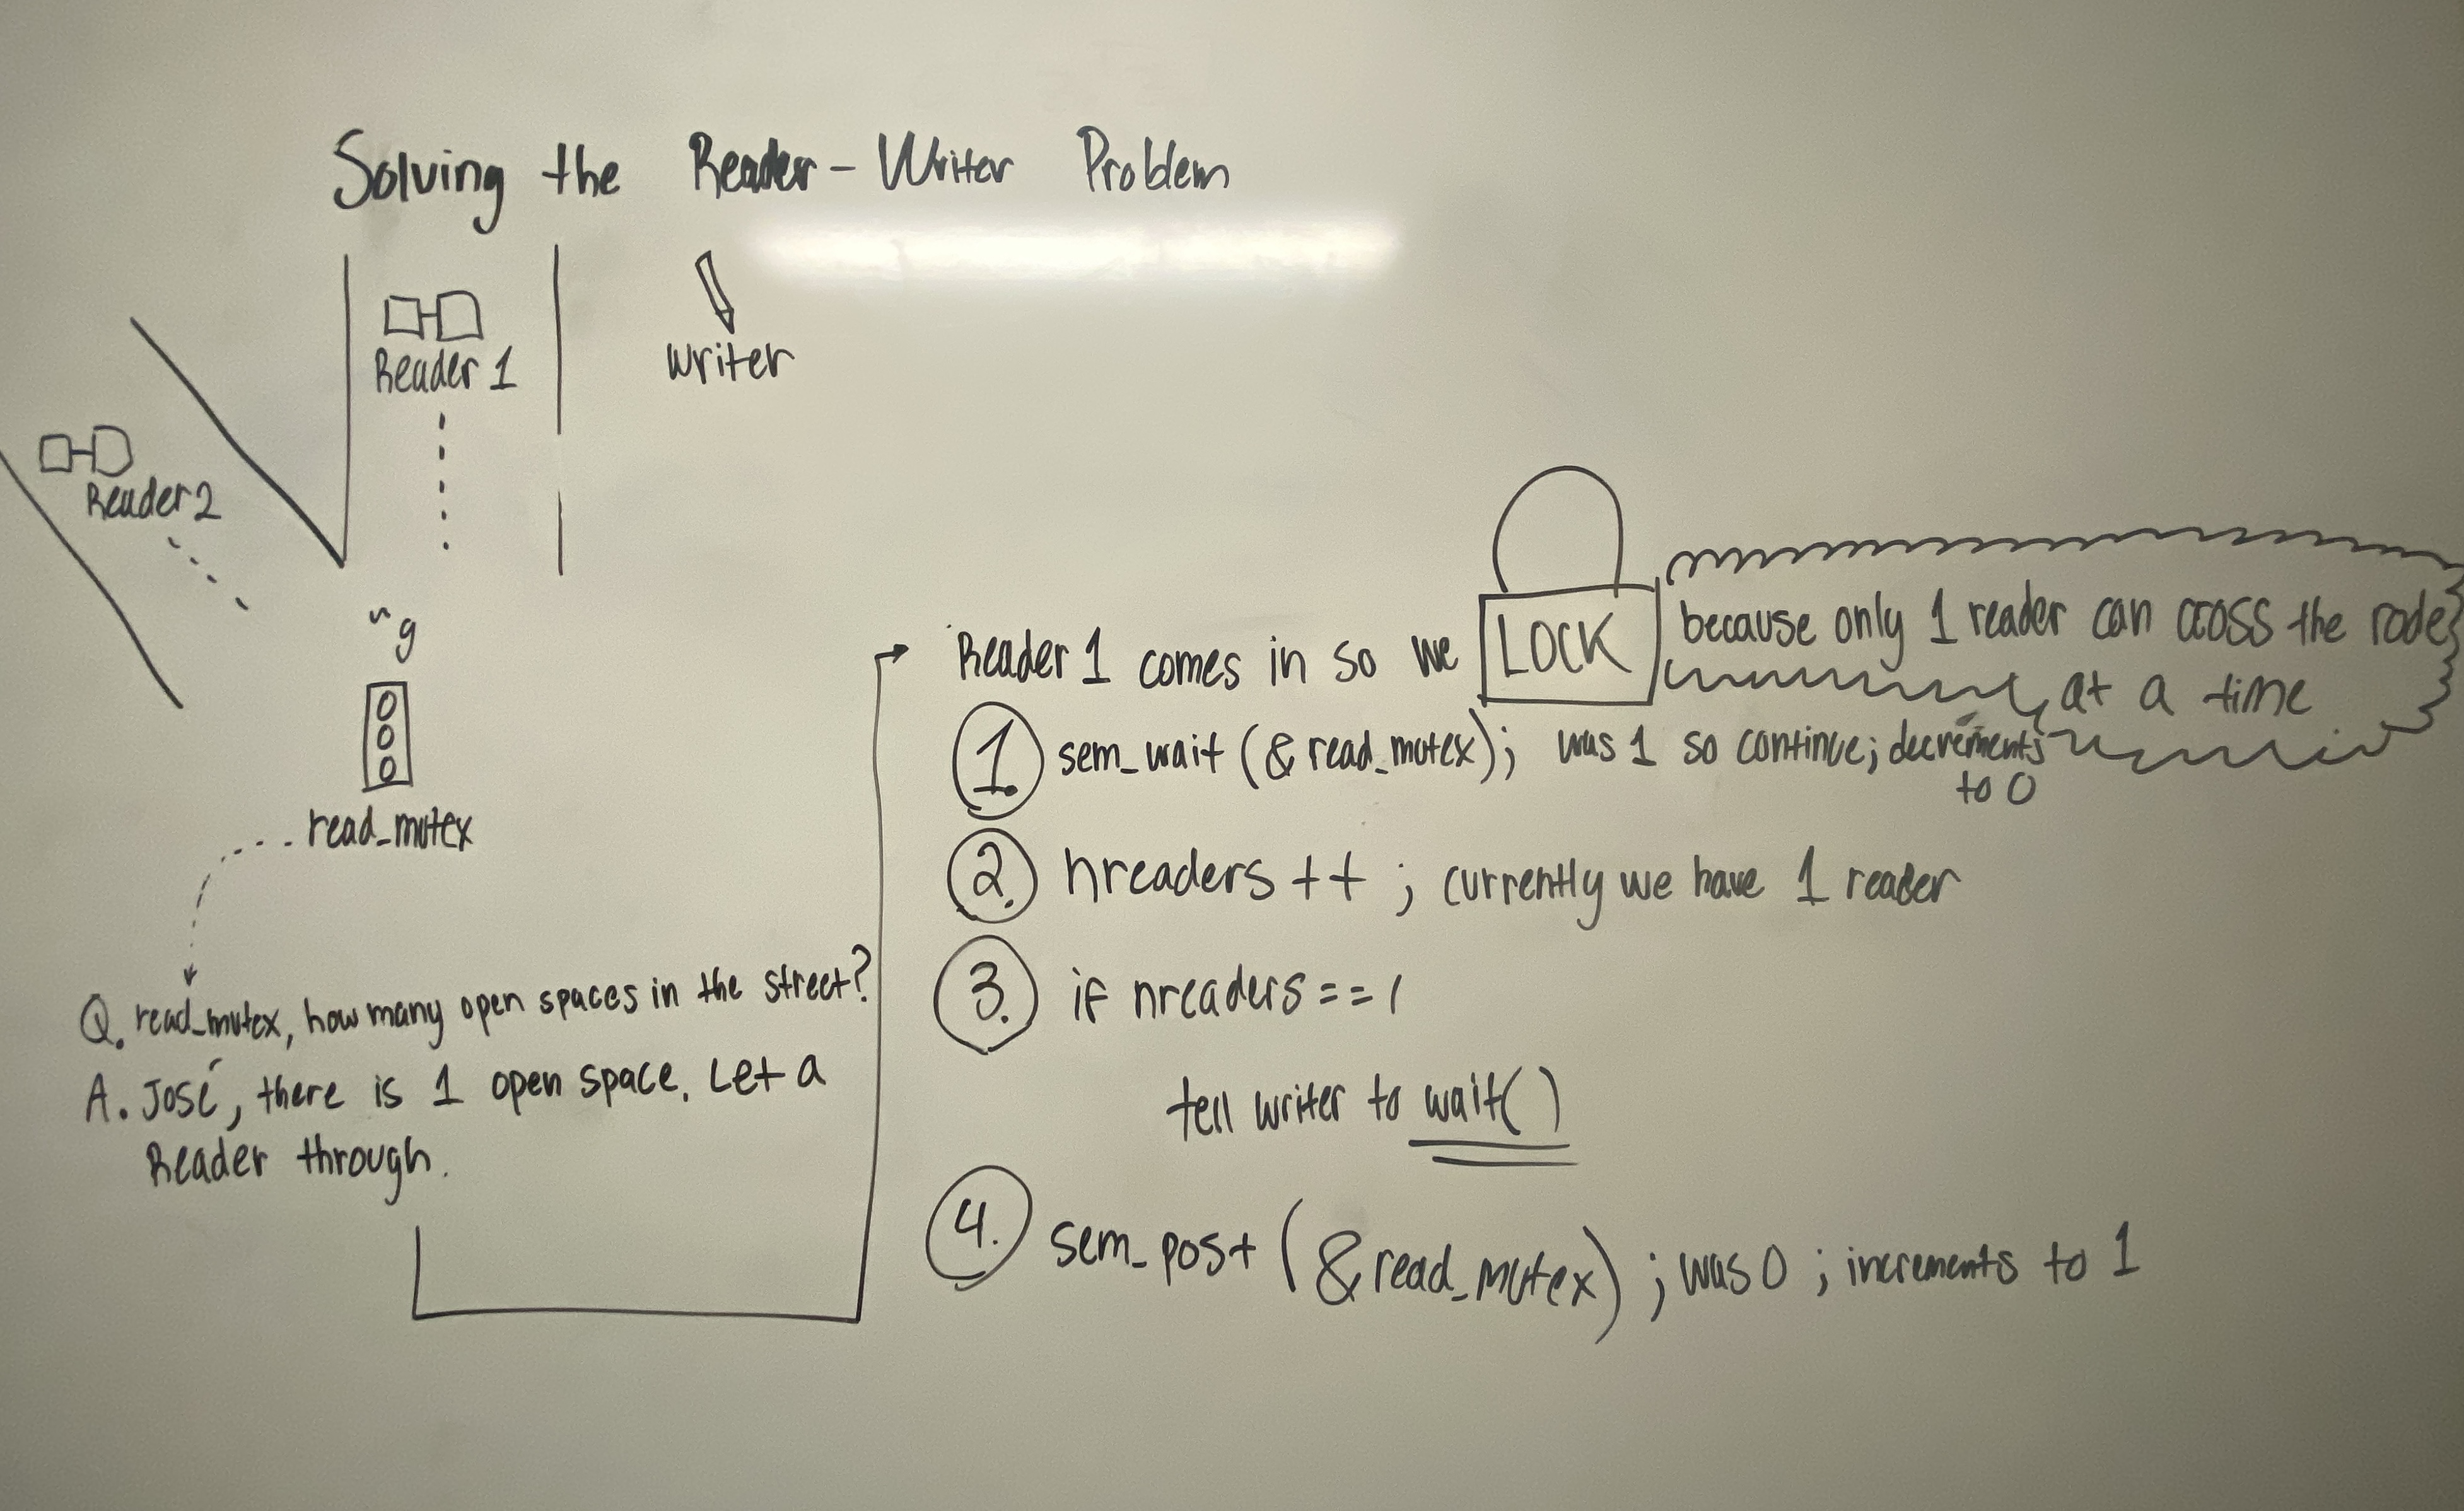 Solving the Reader-Writer Problem
Reader 1
writer
Reader 2
read_mutex
Q. read_mutex, how many open spaces in the street?
A. José, there is 1 open space. Let a
Reader through.
Reader 1 comes in so we LOCK because only 1 reader can cross the rode
at a time
1. sem_wait (& read_mutex); was 1 so continue; decrements
to 0
2. nreaders ++ ; currently we have 1 reader
3. if nreaders == 1
tell writer to wait()
4. sem_post (& read_mutex) ; was 0 ; increments to 1